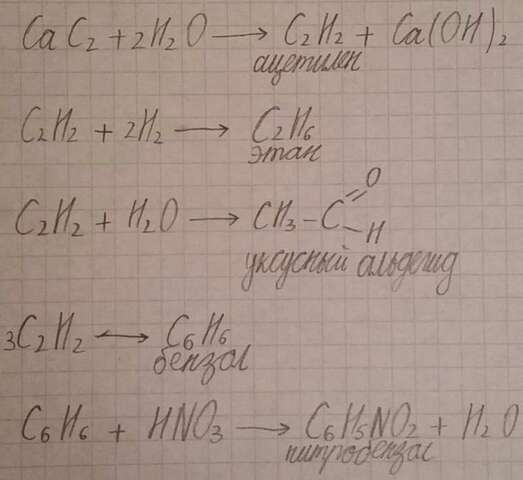 CaC₂ + 2H₂O → C₂H₂ + Ca(OH)₂
ацетилен
C₂H₂ + 2H₂ → C₂H₆
этан
C₂H₂ + H₂O → CH₃-C=O-H
уксусный альдегид
3C₂H₂ → C₆H₆
бензол
C₆H₆ + HNO₃ → C₆H₅NO₂ + H₂O
нитробензол